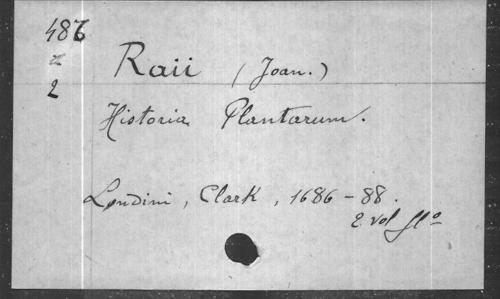 486
2
Raii (Joan.)
Historia Plantarum.
Londini, Clark, 1686-88.
2 vol flo